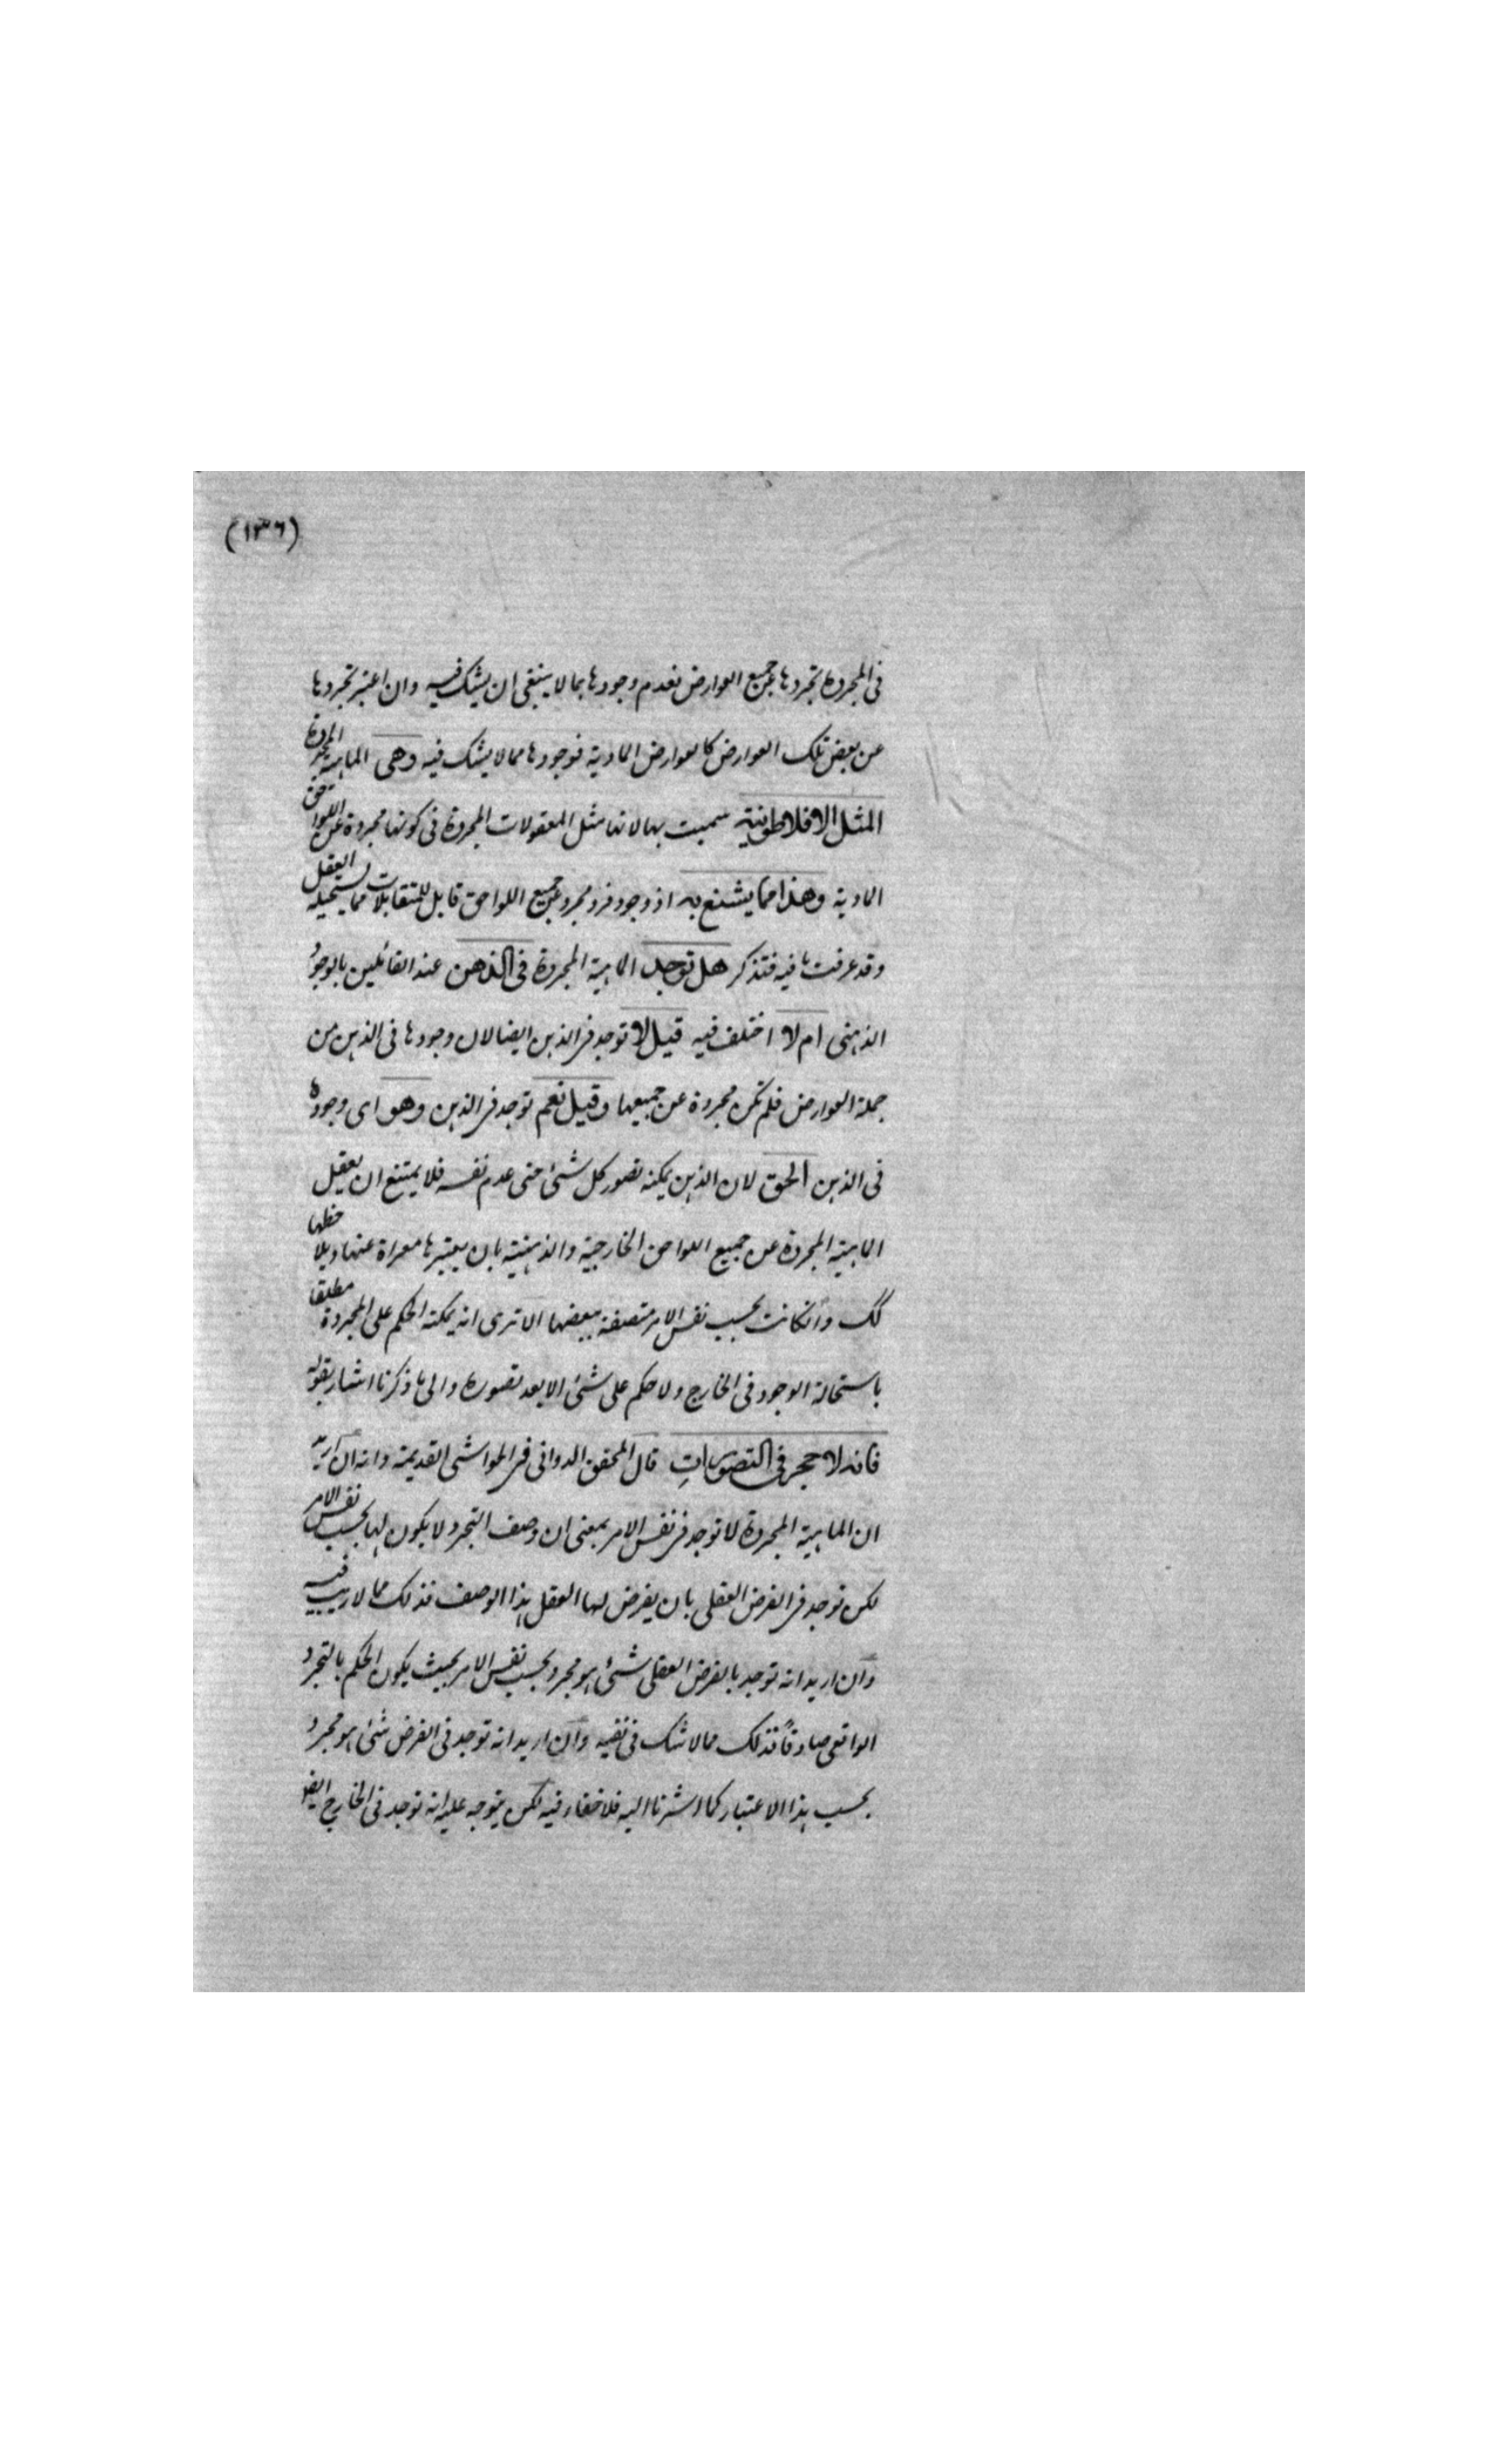 (١٣٦)
فى المجردة تجردها عن جميع العوارض فعدم وجودها بما لا ينبغى ان يشك فيه وان اعتبر تجردها
عن بعض تلك العوارض كالعوارض المادية فوجودها مما لا يشك فيه وهى الماهية المجردة
المثل الافلاطونية سميت بها لانها مثل المعقولات المجردة فى كونها مجردة عن اللواحق
المادية وهذا مما يشنع به اذ وجود فرد مجرد عن جميع اللواحق قابل للمتقابلات مما يستحيله العقل
وقد عرفت ما فيه فتذكر هل توجد الماهية المجردة فى الذهن عند القائلين بالوجود
الذهنى ام لا اختلف فيه قيل لا توجد فى الذهن ايضا لان وجودها فى الذهن من
جملة العوارض فلم تكن مجردة عن جميعها وقيل نعم توجد فى الذهن وهو اى وجوده
فى الذهن الحق لان الذهن يمكنه تصور كل شئ حتى عدم نفسه فلا يمتنع ان يعقل
الماهية المجردة عن جميع اللواحق الخارجية والذهنية بان يعتبرها معراة عنها ويلاحظها
كك وانكانت بحسب نفس الامر متصفة ببعضها الا ترى انه يمكنه الحكم على المجردة مطلقا
باستحالة الوجود فى الخارج ولا حكم على شئ الا بعد تصوره والى ما ذكرنا اشار بقوله
فانه لا حجر فى التصورات قال المحقق الدوانى فى الحواشى القديمة وانه ان اريد
ان الماهية المجردة لا توجد فى نفس الامر بمعنى ان وصف التجرد لا يكون لها بحسب نفس الامر
لكن توجد فى الفرض العقلى بان يفرض لها العقل هذا الوصف فذلك مما لا ريب فيه
وان اريد انه توجد بالفرض العقلى شئ هو مجرد بحسب نفس الامر بحيث يكون الحكم بالتجرد
الواقعى صادقاً فذلك مما لا شك فى نفيه وان اريد انه توجد فى الفرض شئ هو مجرد
بحسب هذا الاعتبار كما اشرنا اليه فلا خفاء فيه لكن يتوجه عليه انه توجد فى الخارج ايض